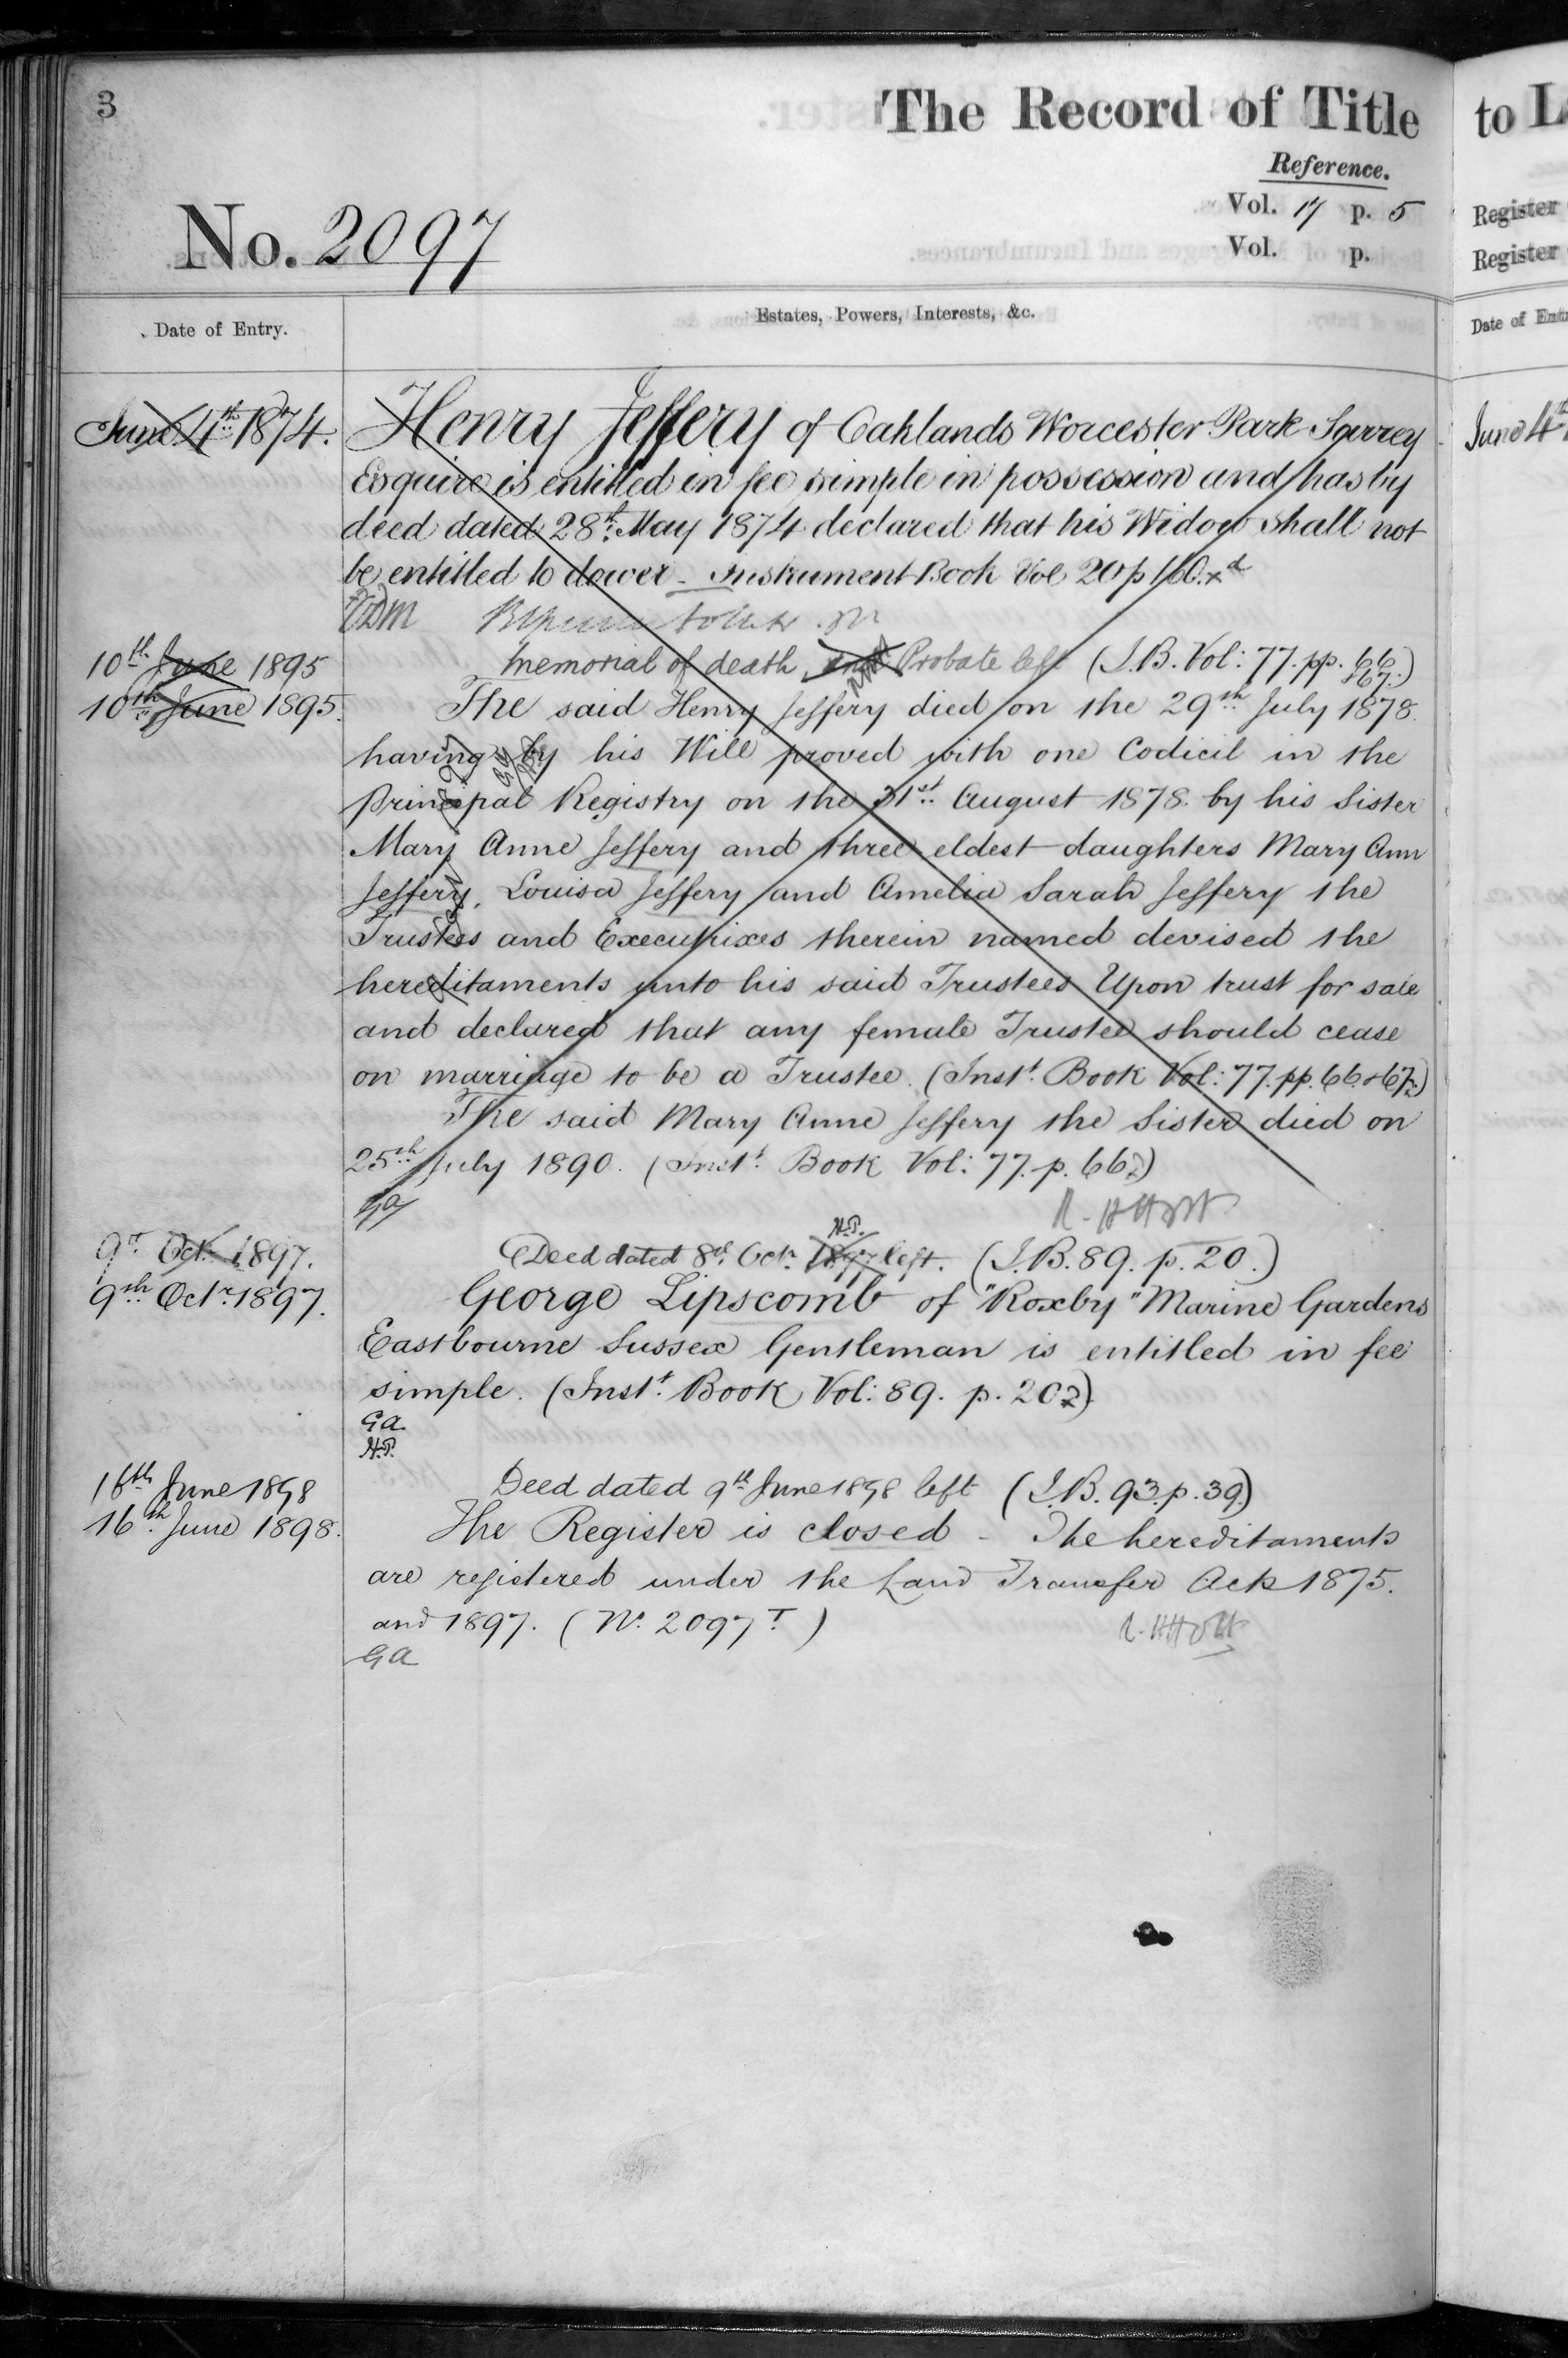 3
The Record of Title
Reference.
Vol. 17 p. 5
Vol. p.
No. 2097
Date of Entry.
Estates, Powers, Interests, &c.
June 4th 1874.
Henry Jeffery of Oaklands Worcester Park Surrey
Esquire is entitled in fee simple in possession and has by
deed dated 28th May 1874 declared that his Widow shall not
be entitled to dower - Instrument Book Vol 20 p 160.
10th June 1895
Memorial of death and Probate left (I.B. Vol: 77. pp. 66 & 67.)
10th June 1895.
The said Henry Jeffery died on the 29th July 1878.
having by his Will proved with one Codicil in the
Principal Registry on the 31st August 1878. by his Sister
Mary Anne Jeffery and three eldest daughters Mary Ann
Jeffery, Louisa Jeffery and Amelia Sarah Jeffery the
Trustees and Executrixes therein named devised the
hereditaments unto his said Trustees Upon trust for sale
and declared that any female Trustee should cease
on marriage to be a Trustee. (Inst. Book Vol: 77. pp. 66 & 67.)
The said Mary Anne Jeffery the Sister died on
25th July 1890. (Inst. Book Vol: 77. p. 66.)
GA
9th Oct. 1897.
H.P.
Deed dated 8th Octr. 1897 left. (I.B. 89. p. 20.)
9th Octr. 1897.
George Lipscomb of "Roxby" Marine Gardens
Eastbourne Sussex Gentleman is entitled in fee
simple. (Inst. Book Vol: 89. p. 20.)
GA
H.P.
16th June 1898
Deed dated 9th June 1898 left (I.B. 93. p. 39.)
16th June 1898.
The Register is closed - The hereditaments
are registered under the Land Transfer Acts 1875.
and 1897. (No. 2097 T)
GA
to L
Register
Register
Date of Ent
June 4th